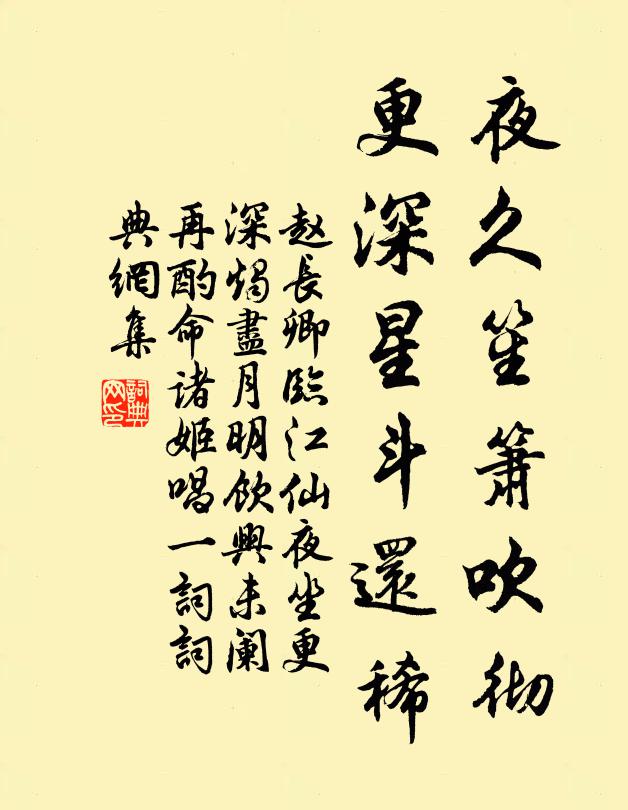 夜久笙簫吹彻
更深星斗還稀
赵長卿臨江仙夜坐更
深燭盡月明飲興未阑
再酌命诸姬唱一詞詞
典網集
詞典
网印